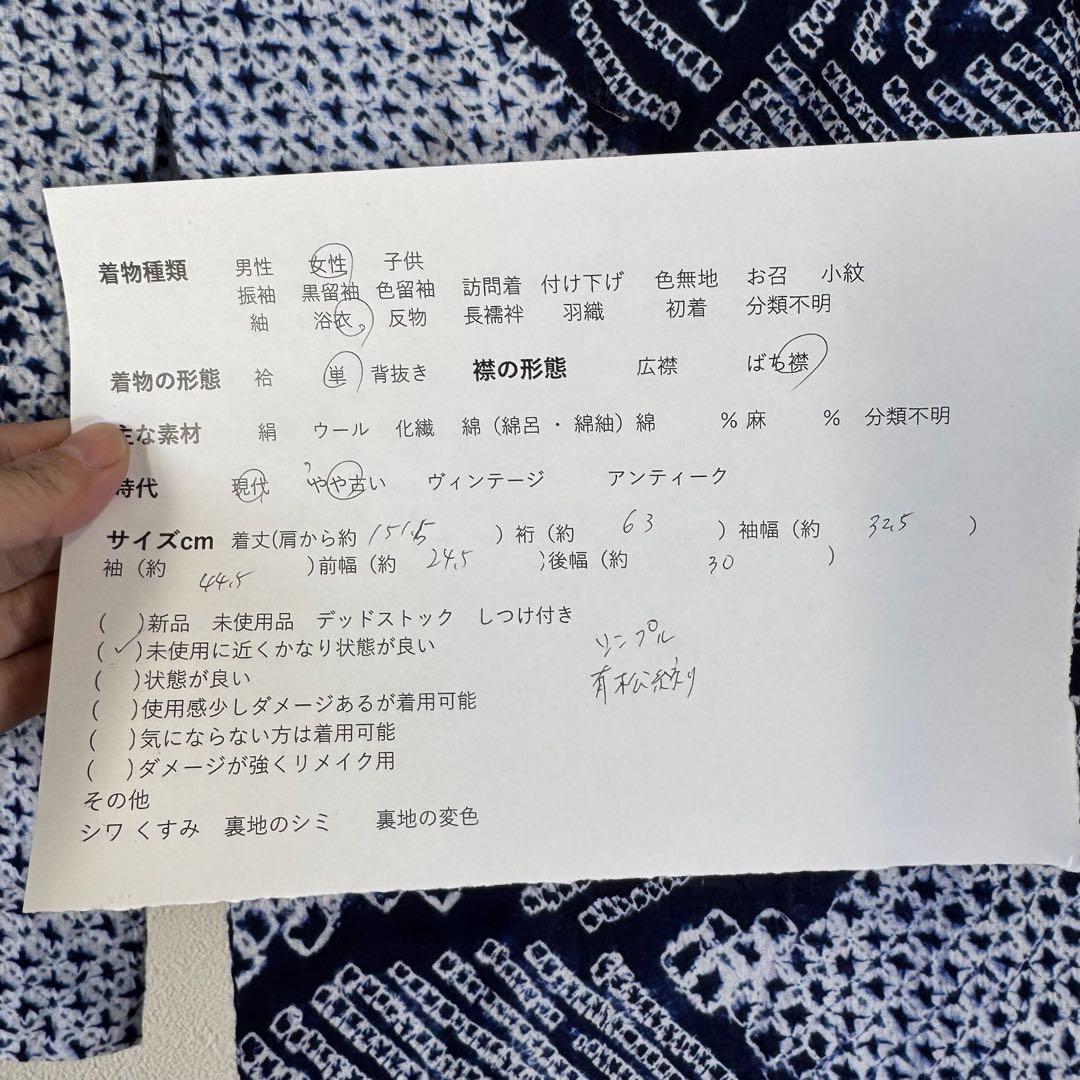 着物種類 男性 女性 子供
振袖 黒留袖 色留袖 訪問着 付け下げ 色無地 お召 小紋
紬 浴衣 反物 長襦袢 羽織 初着 分類不明
着物の形態 袷 単 背抜き 襟の形態 広襟 ばち襟
主な素材 絹 ウール 化繊 綿（綿呂・綿紬）綿 ％麻 ％ 分類不明
時代 現代 ?やや古い ヴィンテージ アンティーク
サイズcm 着丈(肩から約 151.5 ）裄（約 63 ）袖幅（約 32.5 ）
袖（約 44.5 )前幅（約 24.5 )後幅（約 30 ）
( )新品 未使用品 デッドストック しつけ付き
(✓)未使用に近くかなり状態が良い
( )状態が良い
( )使用感少しダメージあるが着用可能
( )気にならない方は着用可能
( )ダメージが強くリメイク用
その他
シワ くすみ 裏地のシミ 裏地の変色
リンプル
有松絞り